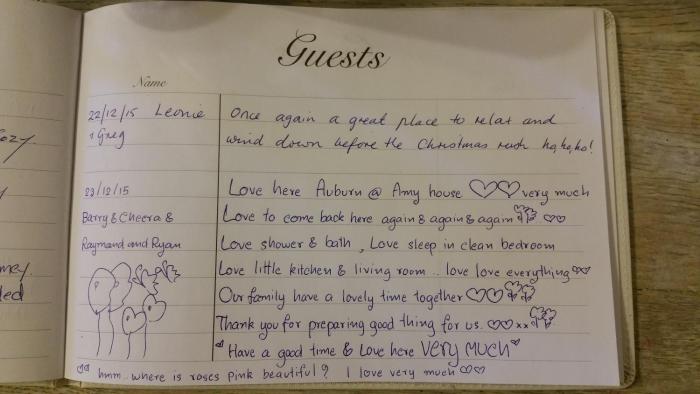 ozy.
mey.
led
Guests
Name
22/12/15 Leonie
& Greg
Once again a great place to relax and
wind down before the Christmas rush ho, ho, ho!
23/12/15
Barry & Cheera &
Raymand and Ryan
Love here Auburn @ Amy house ♡♡ very much
Love to come back here again & again & again ♡♡
Love shower & bath , Love sleep in clean bedroom
Love little kitchen & living room .. love love everything ♡♡
Our family have a lovely time together ♡♡
Thank you for preparing good thing for us. ♡♡ xx
Have a good time & Love here VERY MUCH
♡♡ hmm.. where is roses pink beautiful? I love very much ♡♡